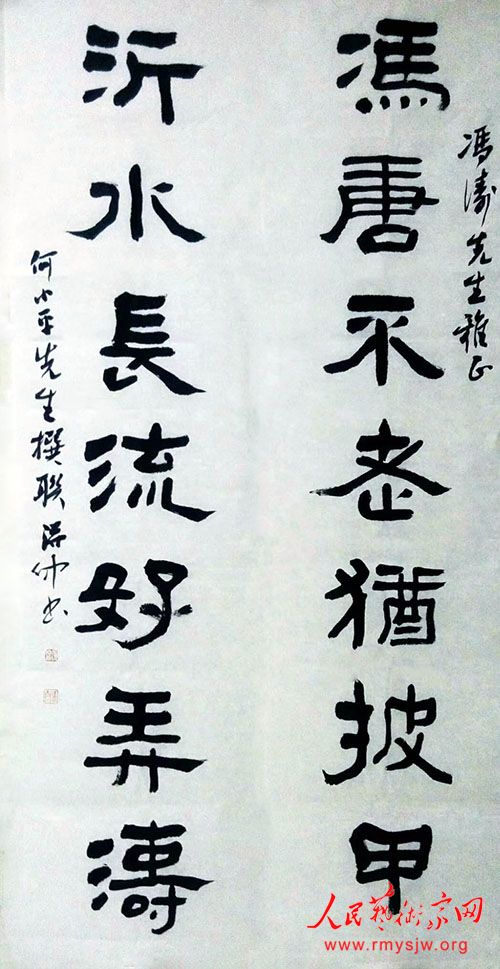 馮濤先生雅正
馮唐不老猶披甲
沂水長流好弄濤
何小平先生撰联 书
人民藝術家网
www.rmysjw.org